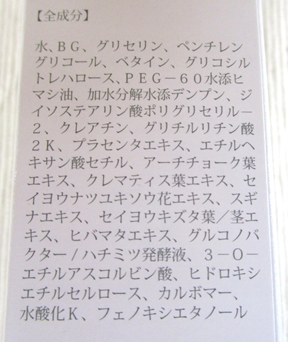 【全成分】
水、BG、グリセリン、ペンチレン
グリコール、ベタイン、グリコシル
トレハロース、PEG－60水添ヒ
マシ油、加水分解水添デンプン、ジ
イソステアリン酸ポリグリセリル－
2、クレアチン、グリチルリチン酸
2K、プラセンタエキス、エチルヘ
キサン酸セチル、アーチチョーク葉
エキス、クレマティス葉エキス、セ
イヨウナツユキソウ花エキス、スギ
ナエキス、セイヨウキズタ葉／茎エ
キス、ヒバマタエキス、グルコノバ
クター/ハチミツ発酵液、3－O－
エチルアスコルビン酸、ヒドロキシ
エチルセルロース、カルボマー、
水酸化K、フェノキシエタノール